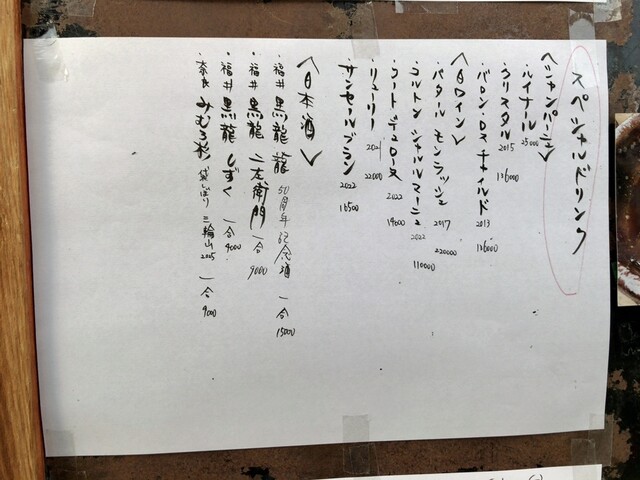 スペシャルドリンク
〈シャンパーニュ〉
・ルイナール 25000
・クリスタル 2015 126000
・バロン・ロスチャイルド 2013 126000
〈白ワイン〉
・バタール モンラッシェ 2017 220000
・コルトン シャルルマーニュ 2022 110000
・コート デュ ローヌ 2022 19000
・リューリー 2021 22000
・サンセールブラン 2022 16500
〈日本酒〉
・福井 黒龍 龍 50周年記念酒 一合 15000
・福井 黒龍 二左衛門 一合 9000
・福井 黒龍 しずく 一合 9000
・奈良 みむろ杉 袋しぼり 三輪山 2025 一合 9000